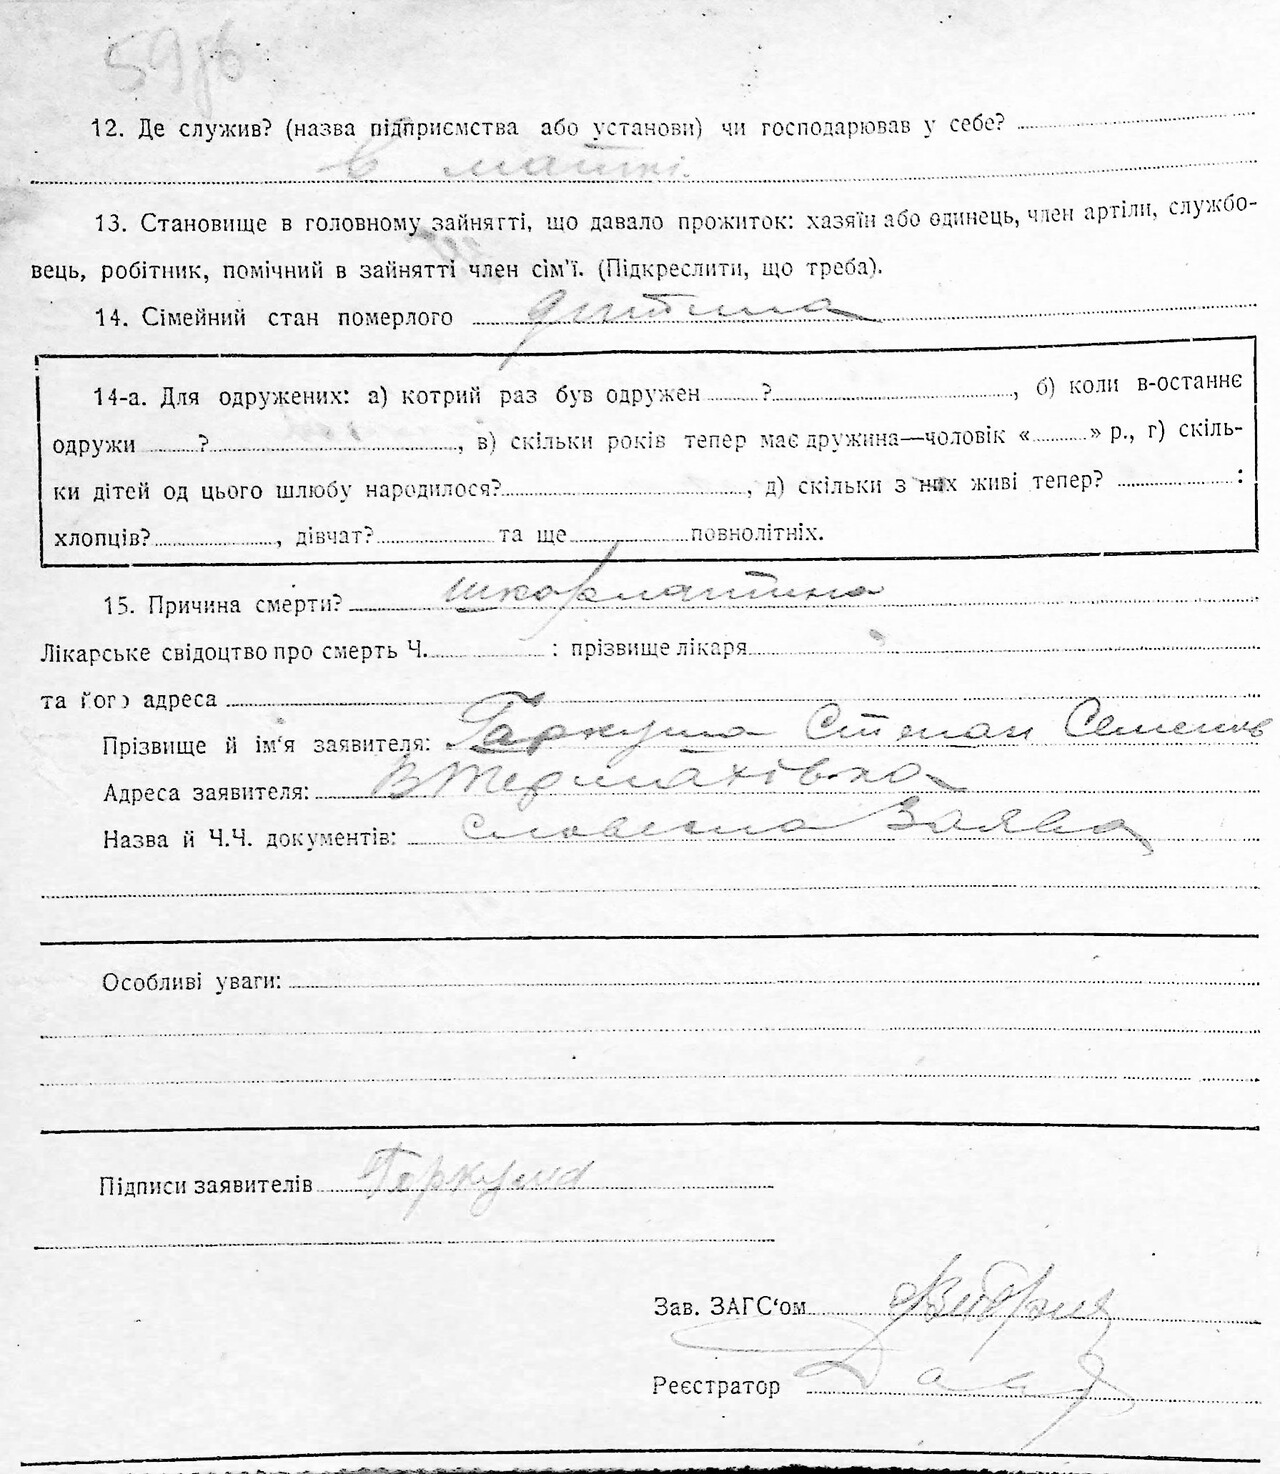 59
12. Де служив? (назва підприємства або установи) чи господарював у себе?
в маткі.
13. Становище в головному зайнятті, що давало прожиток: хазяїн або одинець, член артіли, службо-
вець, робітник, помічний в зайнятті член сім'ї. (Підкреслити, що треба).
14. Сімейний стан померлого дитина
14-а. Для одружених: а) котрий раз був одружен ? , б) коли в-останнє
одружи ? , в) скільки років тепер має дружина—чоловік « » р., г) скіль-
ки дітей од цього шлюбу народилося? , д) скільки з них живі тепер? :
хлопців? , дівчат? та ще повнолітніх.
15. Причина смерти? шкорлятина
Лікарське свідоцтво про смерть Ч. : прізвище лікаря
та його адреса
Прізвище й ім'я заявителя: Гаркуша Степан Семенів
Адреса заявителя: В Термахівка
Назва й Ч.Ч. документів: словесна Заява
Особливі уваги:
Підписи заявителів Гаркуша
Зав. ЗАГС'ом
Реєстратор